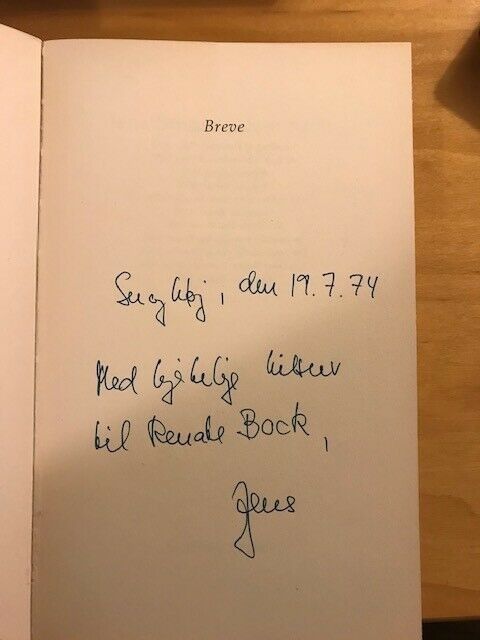 Breve
Snoghøj, den 19.7.74
Med hjertelige hilsner
til Renate Bock,
Jens